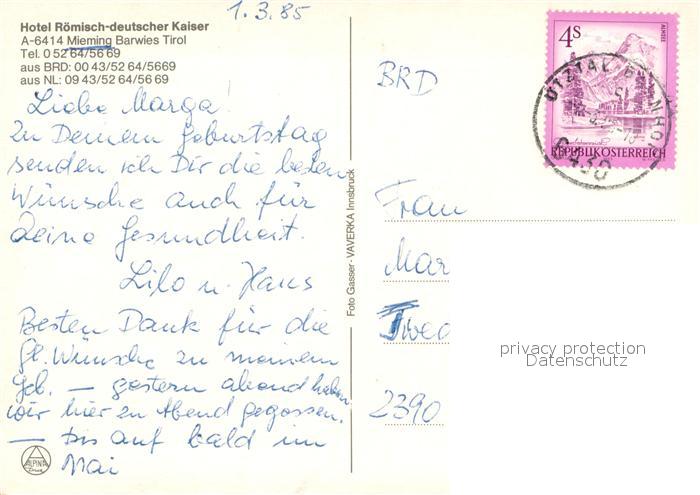 1.3.85
Hotel Römisch-deutscher Kaiser
A-6414 Mieming Barwies Tirol
Tel. 0 52 64/56 69
aus BRD: 00 43/52 64/5669
aus NL: 09 43/52 64/56 69
Liebe Marga!
Zu Deinem Geburtstag
senden ich Dir die besten
Wünsche auch für
Deine Gesundheit.
Lilo u. Hans
Besten Dank für die
gl. Wünsche zu meinem
Geb. — gestern abend haben
wir hier zu Abend gegessen.
— bis auf bald im
Mai
ALPINA
Foto Gasser - VAVERKA Innsbruck
4S
ALMSEE
REPUBLIK ÖSTERREICH
ÖTZTAL BAHNHOF
6430
BRD
Frau
Mar
2390
privacy protection
Datenschutz